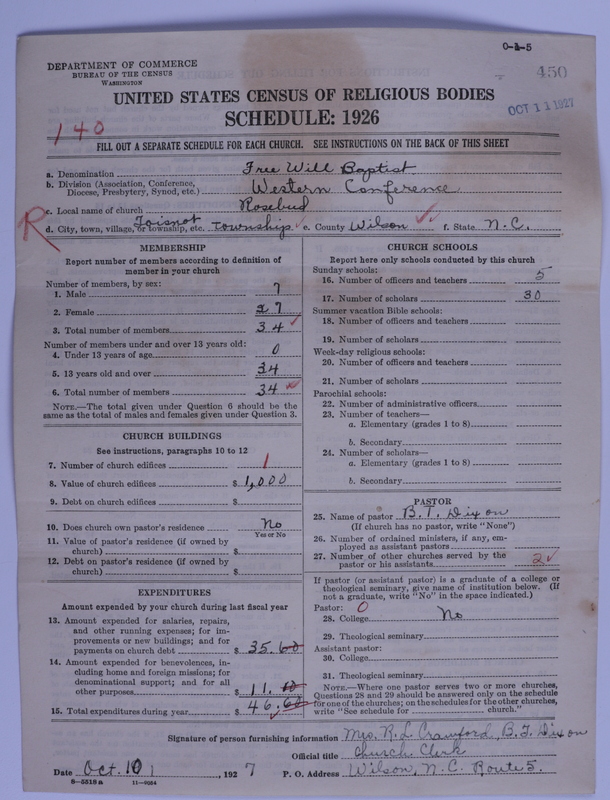 0-1-5
DEPARTMENT OF COMMERCE
BUREAU OF THE CENSUS
WASHINGTON
450
UNITED STATES CENSUS OF RELIGIOUS BODIES
OCT 11 1927
SCHEDULE: 1926
140
FILL OUT A SEPARATE SCHEDULE FOR EACH CHURCH. SEE INSTRUCTIONS ON THE BACK OF THIS SHEET
a. Denomination Free Will Baptist
b. Division (Association, Conference, Diocese, Presbytery, Synod, etc.) Western Conference
c. Local name of church Rosebud
R
d. City, town, village, or township, etc. Toisnot township e. County Wilson f. State N.C.
MEMBERSHIP
Report number of members according to definition of
member in your church
Number of members, by sex:
1. Male 7
2. Female 27
3. Total number of members 34
Number of members under and over 13 years old:
4. Under 13 years of age 0
5. 13 years old and over 34
6. Total number of members 34
NOTE.—The total given under Question 6 should be the
same as the total of males and females given under Question 3.
CHURCH BUILDINGS
See instructions, paragraphs 10 to 12
7. Number of church edifices 1
8. Value of church edifices $ 1,000
9. Debt on church edifices $
10. Does church own pastor's residence No
Yes or No
11. Value of pastor's residence (if owned by
church) $
12. Debt on pastor's residence (if owned by
church) $
EXPENDITURES
Amount expended by your church during last fiscal year
13. Amount expended for salaries, repairs,
and other running expenses; for im-
provements or new buildings; and for
payments on church debt $ 35.60
14. Amount expended for benevolences, in-
cluding home and foreign missions; for
denominational support; and for all
other purposes $ 11.10
15. Total expenditures during year $ 46.60
CHURCH SCHOOLS
Report here only schools conducted by this church
Sunday schools:
16. Number of officers and teachers 5
17. Number of scholars 30
Summer vacation Bible schools:
18. Number of officers and teachers
19. Number of scholars
Week-day religious schools:
20. Number of officers and teachers
21. Number of scholars
Parochial schools:
22. Number of administrative officers
23. Number of teachers—
a. Elementary (grades 1 to 8)
b. Secondary
24. Number of scholars—
a. Elementary (grades 1 to 8)
b. Secondary
PASTOR
25. Name of pastor B. T. Dixon
(If church has no pastor, write "None")
26. Number of ordained ministers, if any, em-
ployed as assistant pastors
27. Number of other churches served by the
pastor or his assistants 2
If pastor (or assistant pastor) is a graduate of a college or
theological seminary, give name of institution below. (If
not a graduate, write "No" in the space indicated.)
Pastor: 0
28. College No
29. Theological seminary
Assistant pastor:
30. College
31. Theological seminary
NOTE.—Where one pastor serves two or more churches,
Questions 28 and 29 should be answered only on the schedule
for one of the churches; on the schedules for the other churches,
write "See schedule for church."
Signature of person furnishing information Mrs. R. L. Crawford, B. T. Dixon
Official title Church Clerk
Date Oct. 10, 1927 P. O. Address Wilson, N.C. Route 5.
8-5518 a 11-9054